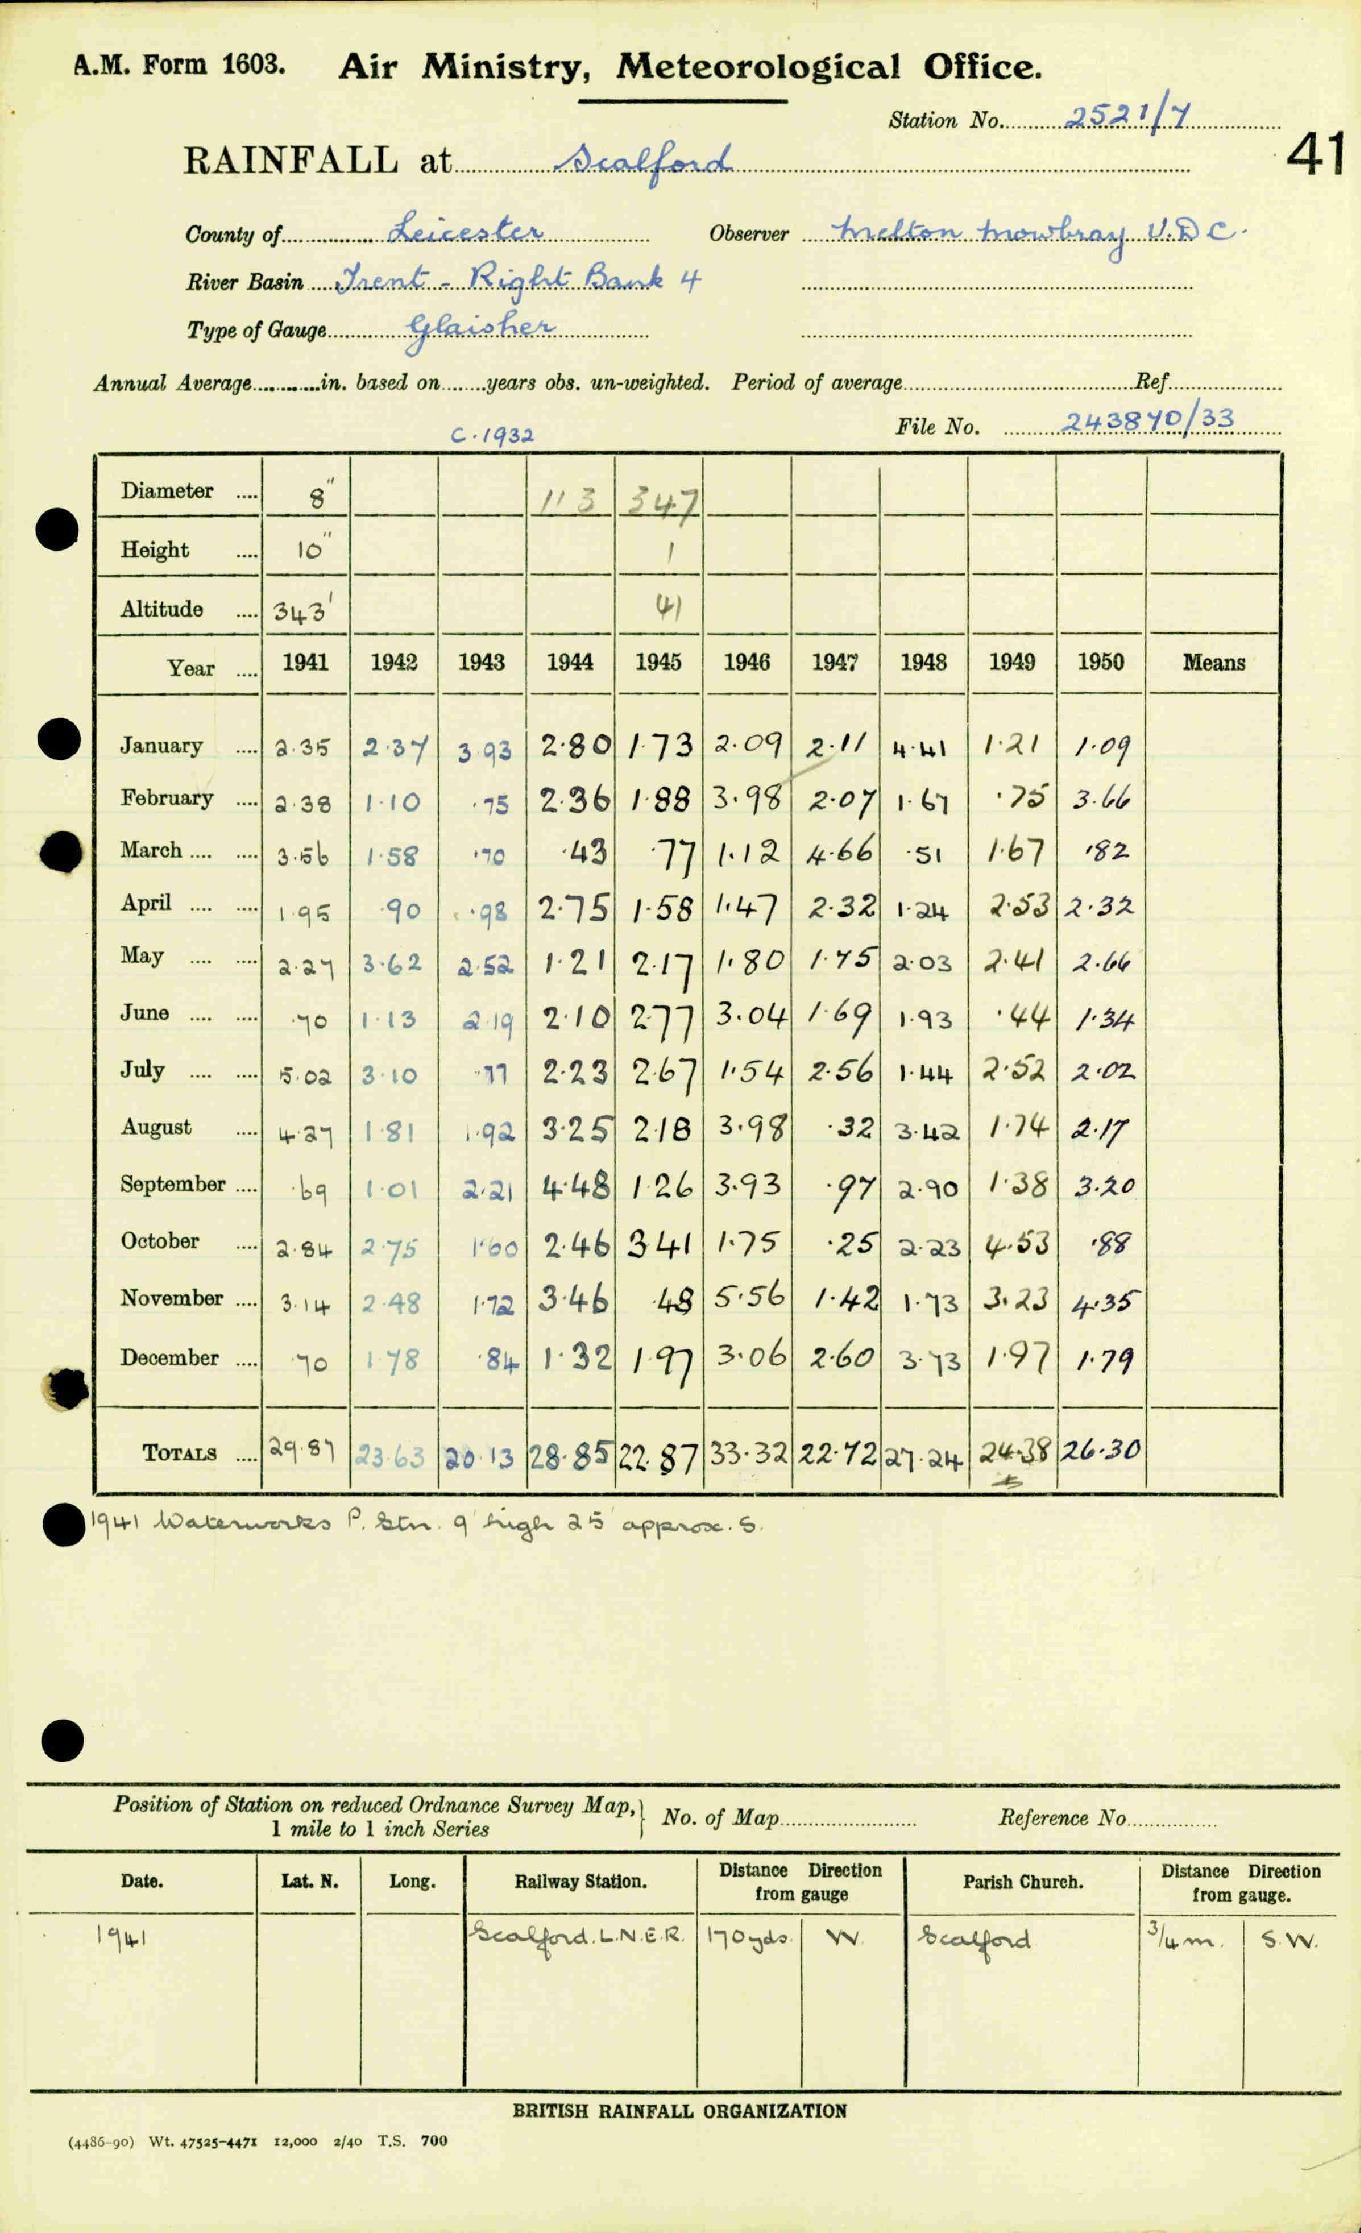 A.M. Form 1603. Air Ministry, Meteorological Office.
Station No. 2521/7
41
RAINFALL at Scalford
County of Leicester Observer Melton Mowbray U.D.C.
River Basin Trent - Right Bank 4
Type of Gauge Glaisher
Annual Average in. based on years obs. un-weighted. Period of average Ref
C. 1932 File No. 243870/33
Diameter 8" 113 347
Height 10" 1
Altitude 343' 41
Year 1941 1942 1943 1944 1945 1946 1947 1948 1949 1950 Means
January 2.35 2.37 3.93 2.80 1.73 2.09 2.11 4.41 1.21 1.09
February 2.38 1.10 .75 2.36 1.88 3.98 2.07 1.67 .75 3.66
March 3.56 1.58 .70 .43 .77 1.12 4.66 .51 1.67 .82
April 1.95 .90 .98 2.75 1.58 1.47 2.32 1.24 2.53 2.32
May 2.27 3.62 2.52 1.21 2.17 1.80 1.75 2.03 2.41 2.66
June .70 1.13 2.19 2.10 2.77 3.04 1.69 1.93 .44 1.34
July 5.02 3.10 .77 2.23 2.67 1.54 2.56 1.44 2.52 2.02
August 4.27 1.81 1.92 3.25 2.18 3.98 .32 3.42 1.74 2.17
September .69 1.01 2.21 4.48 1.26 3.93 .97 2.90 1.38 3.20
October 2.84 2.75 1.60 2.46 3.41 1.75 .25 2.23 4.53 .88
November 3.14 2.48 1.72 3.46 .48 5.56 1.42 1.73 3.23 4.35
December .70 1.78 .84 1.32 1.97 3.06 2.60 3.73 1.97 1.79
TOTALS 29.87 23.63 20.13 28.85 22.87 33.32 22.72 27.24 24.38 26.30
1941 Waterworks P. Stn. 9' high 25' approx. S.
Position of Station on reduced Ordnance Survey Map, No. of Map Reference No.
1 mile to 1 inch Series
Date. Lat. N. Long. Railway Station. Distance Direction from gauge Parish Church. Distance Direction from gauge.
1941 Scalford. L.N.E.R. 170yds. W. Scalford 3/4 m. S.W.
BRITISH RAINFALL ORGANIZATION
(4486-90) Wt. 47525-4471 12,000 2/40 T.S. 700